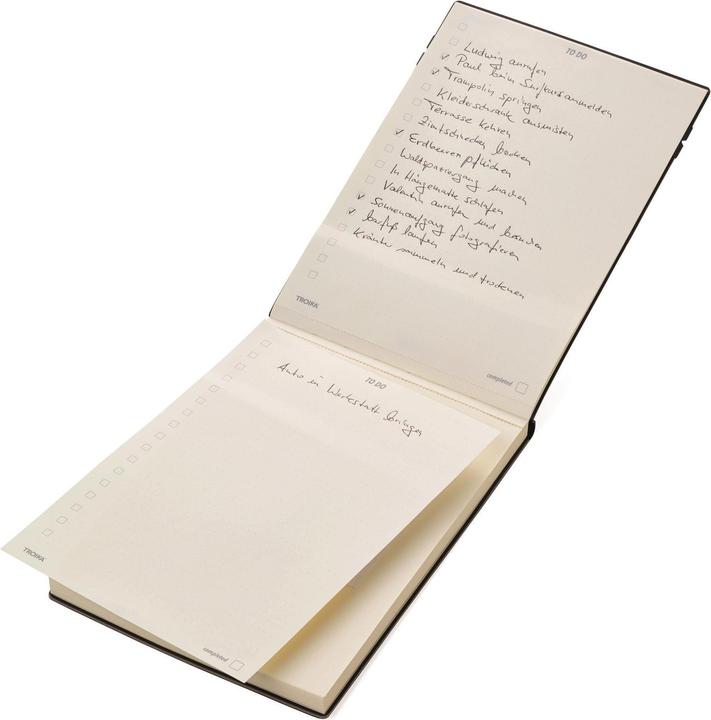 TO DO
Ludwig anrufen
Paul beim Surfkurs anmelden
Trampolin springen
Kleiderschrank ausmisten
Terrasse kehren
Zimtschnecken backen
Erdbeeren pflücken
Waldspaziergang machen
In Hängematte schlafen
Valentin anrufen und
Sonnenaufgang fotografieren
barfuß laufen
Kräuter sammeln und trocknen
TROIKA
completed
TO DO
Auto in Werkstatt bringen
TROIKA
completed